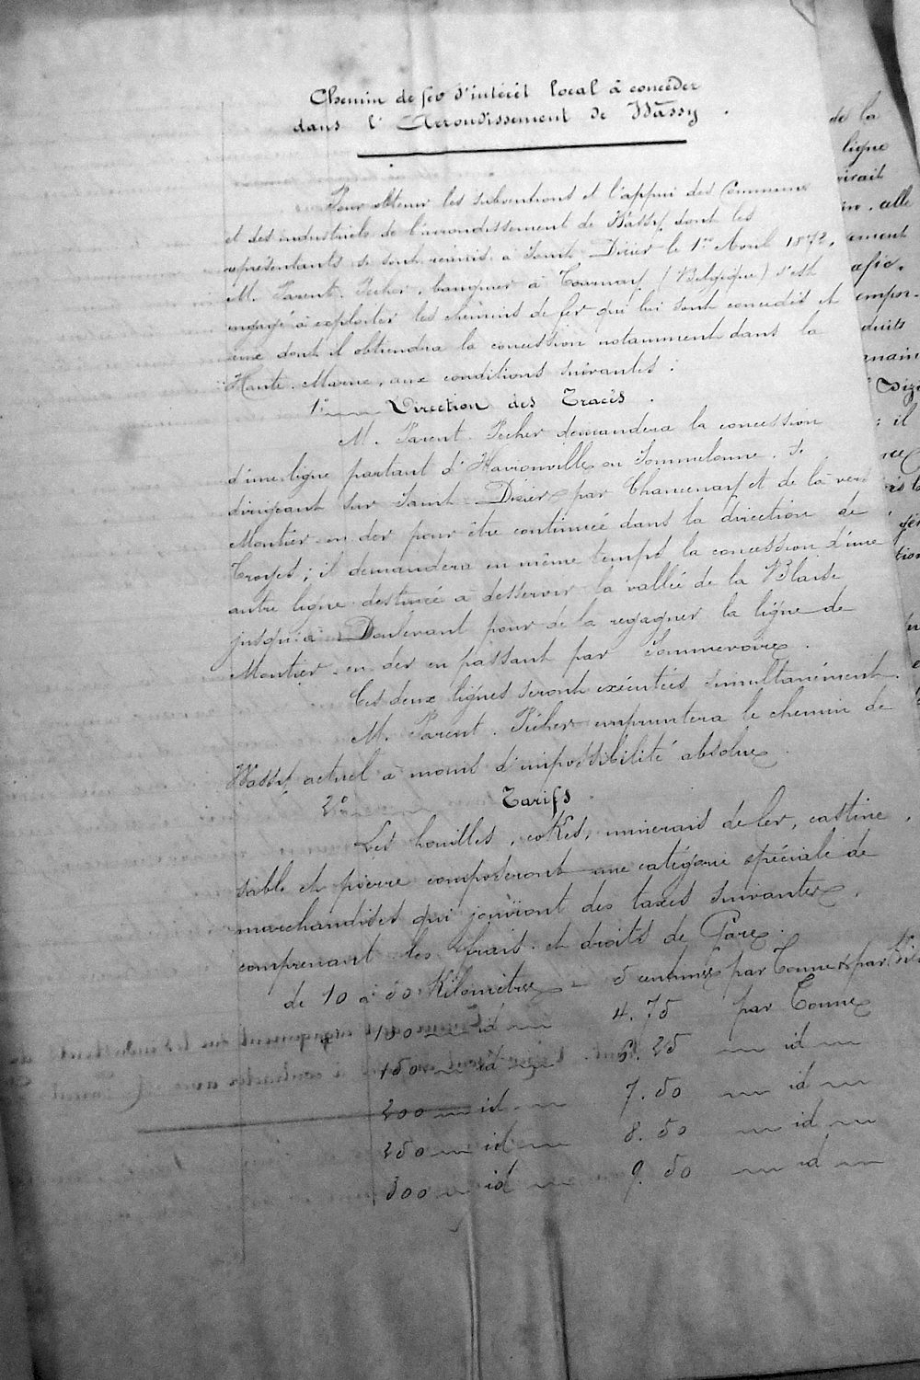 Chemin de fer d'intérêt local à concéder
dans l'Arrondissement de Wassy.
Pour obtenir les subventions et l'appui des Communes
et des industriels de l'arrondissement de Wassy, dont les
représentants se sont réunis à Saint-Dizier le 1er Avril 1872,
M. Parent-Pecher, banquier à Tournay (Belgique) s'est
engagé à exploiter les chemins de fer qui lui sont concédés et
ceux dont il obtiendra la concession notamment dans la
Haute-Marne, aux conditions suivantes :
1° Direction des Tracés.
M. Parent-Pecher demandera la concession
d'une ligne partant d'Haironville ou Sommelonne, se
dirigeant sur Saint-Dizier par Chancenay et de là vers
Montier-en-der pour être continuée dans la direction de
Troyes ; il demandera en même temps la concession d'une
autre ligne destinée à desservir la vallée de la Blaise
jusqu'à Doulevant pour de là regagner la ligne de
Montier-en-der en passant par Sommevoire.
Ces deux lignes seront exécutées simultanément.
M. Parent-Pecher empruntera le chemin de
Wassy actuel à moins d'impossibilité absolue.
2° Tarifs.
Les houilles, cokes, minerais de fer, castine,
sable et pierre composeront une catégorie spéciale de
marchandises qui jouiront des taxes suivantes,
comprenant les frais et droits de Gare.
de 10 à 50 Kilomètres 5 centimes par Tonne et par
100 id 4.75 par Tonne
150 id 6.25 id
200 id 7.50 id
250 id 8.50 id
300 id 9.50 id
de la
ligne